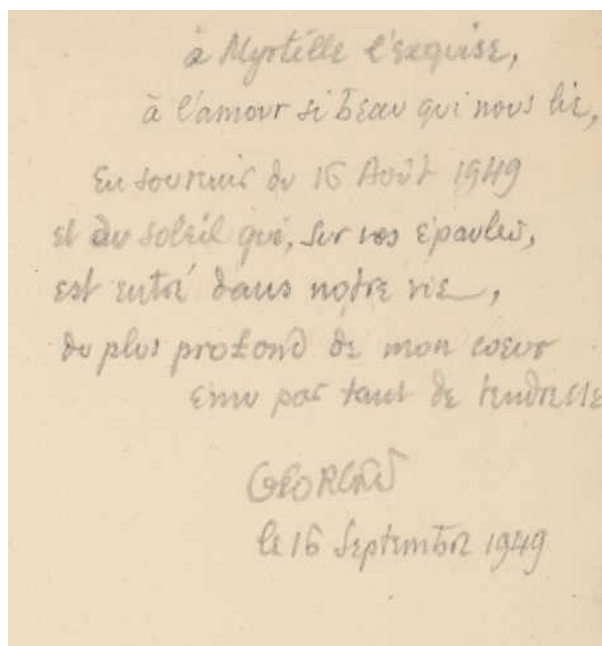 à Myrtille l'exquise,
à l'amour si beau qui nous lie,
En souvenir du 16 Août 1949
et du soleil qui, sur vos épaules,
est entré dans notre vie,
du plus profond de mon coeur
ému par tant de tendresse
GEORGES
le 16 Septembre 1949